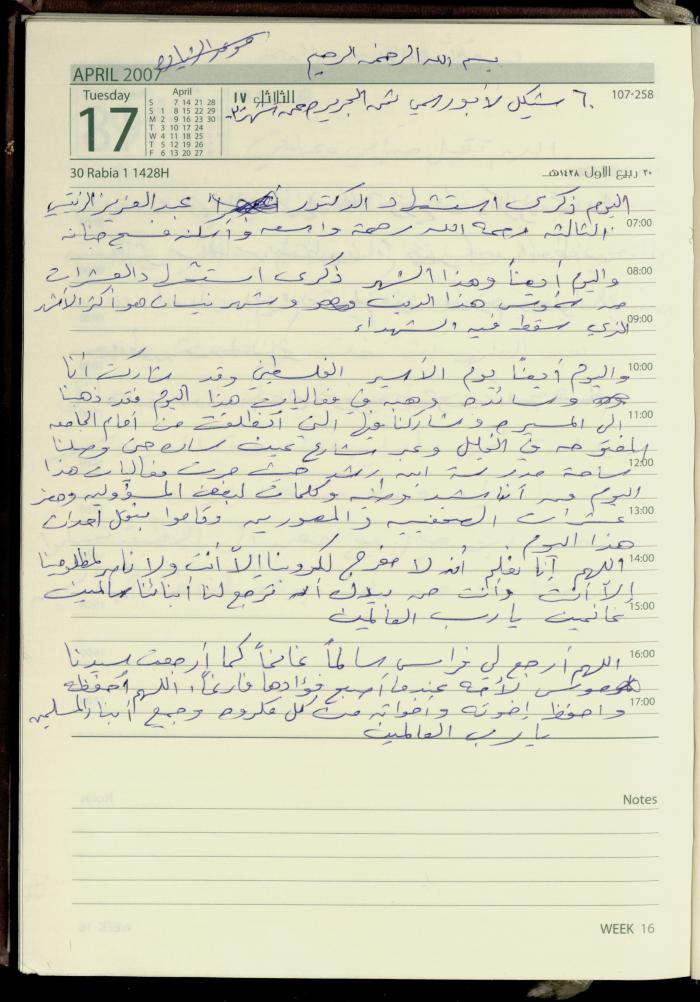 بسم الله الرحمن الرحيم
APRIL 2007
Tuesday
17
April
S 7 14 21 28
S 1 8 15 22 29
M 2 9 16 23 30
T 3 10 17 24
W 4 11 18 25
T 5 12 19 26
F 6 13 20 27
الثلاثاء ١٧
107-258
٦٠ شيكل لأبو ثمن الجرير عن شهر
30 Rabia 1 1428H
٣٠ ربيع الأول ١٤٢٨هـ
اليوم ذكرى استشهاد الدكتور عبد العزيز الرنتيسي
07:00
الثالثه رحمه الله رحمة واسعه وأسكنه فسيح جنانه
08:00
واليوم أيضاً وهذا الشهر ذكرى استشهاد العشرات
من هذا الدين وشهر نيسان هو أكثر الأشهر
09:00
الذي سقط فيه الشهداء
10:00
واليوم أيضاً يوم الأسير الفلسطيني وقد شاركت أنا
وسائده وهبه في فعاليات هذا اليوم فقد ذهبنا
11:00
الى المسيره وشاركنا فيها التي انطلقت من أمام الجامعه
المفتوحه في الخليل وعبر شارع عين ساره حتى وصلنا
12:00
ساحة مدرسة ابن رشد حيث جرت فعاليات هذا
اليوم من أناشيد وطنيه وكلمات لبعض المسؤولين وحضر
13:00
عشرات الصحفيين والمصورين وقاموا بنقل أحداث
هذا اليوم
14:00
اللهم إنا نعلم أنه لا مفرج لكروبنا إلاّ أنت ولا ناصر لمظلومينا
إلا أنت وأنت من بيدك أن ترجع لنا أبنائنا سالمين
15:00
غانمين يا رب العالمين
16:00
اللهم أرجع لي فراس سالماً غانماً كما أرجعت سيدنا
موسى لأمه عندما أصبح فؤادها فارغاً، اللهم احفظه
17:00
واحفظ إخوته وأخواته من كل مكروه وجميع أبناء المسلمين
يا رب العالمين
Notes
WEEK 16